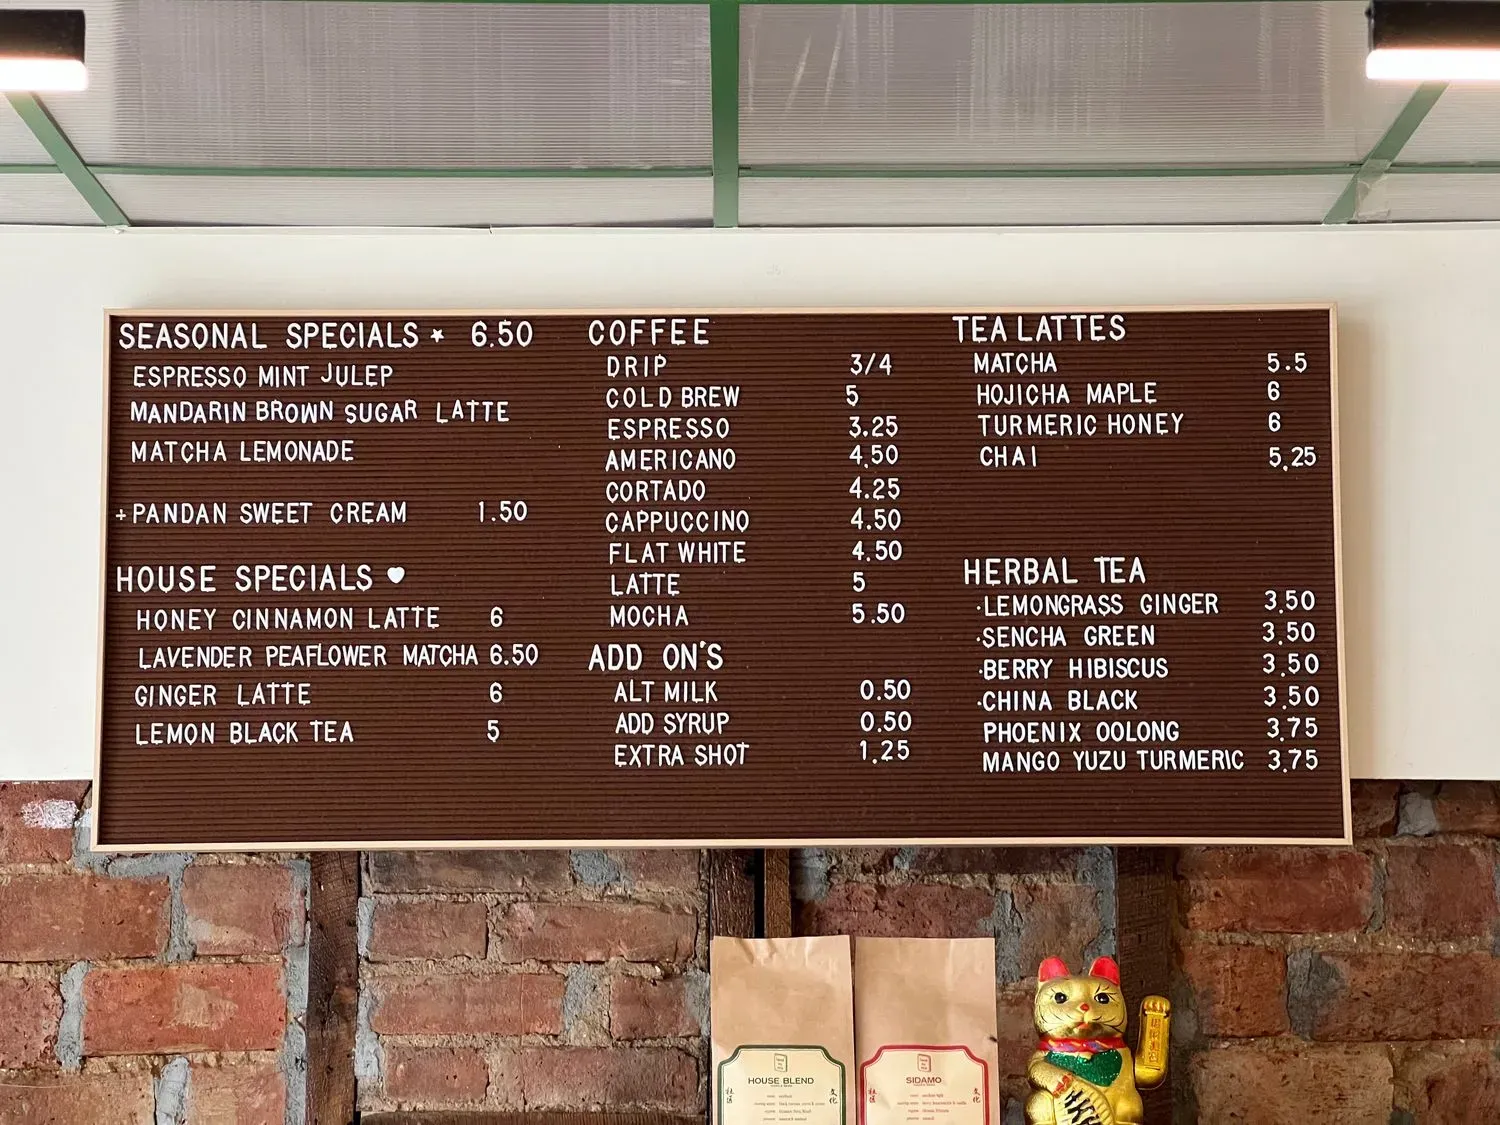 SEASONAL SPECIALS ★ 6.50
ESPRESSO MINT JULEP
MANDARIN BROWN SUGAR LATTE
MATCHA LEMONADE
+PANDAN SWEET CREAM 1.50
HOUSE SPECIALS ♥
HONEY CINNAMON LATTE 6
LAVENDER PEAFLOWER MATCHA 6.50
GINGER LATTE 6
LEMON BLACK TEA 5
COFFEE
DRIP 3/4
COLD BREW 5
ESPRESSO 3.25
AMERICANO 4.50
CORTADO 4.25
CAPPUCCINO 4.50
FLAT WHITE 4.50
LATTE 5
MOCHA 5.50
ADD ON'S
ALT MILK 0.50
ADD SYRUP 0.50
EXTRA SHOT 1.25
TEA LATTES
MATCHA 5.5
HOJICHA MAPLE 6
TURMERIC HONEY 6
CHAI 5.25
HERBAL TEA
·LEMONGRASS GINGER 3.50
·SENCHA GREEN 3.50
·BERRY HIBISCUS 3.50
·CHINA BLACK 3.50
PHOENIX OOLONG 3.75
MANGO YUZU TURMERIC 3.75
HOUSE BLEND
社区
文化
SIDAMO
社区
文化